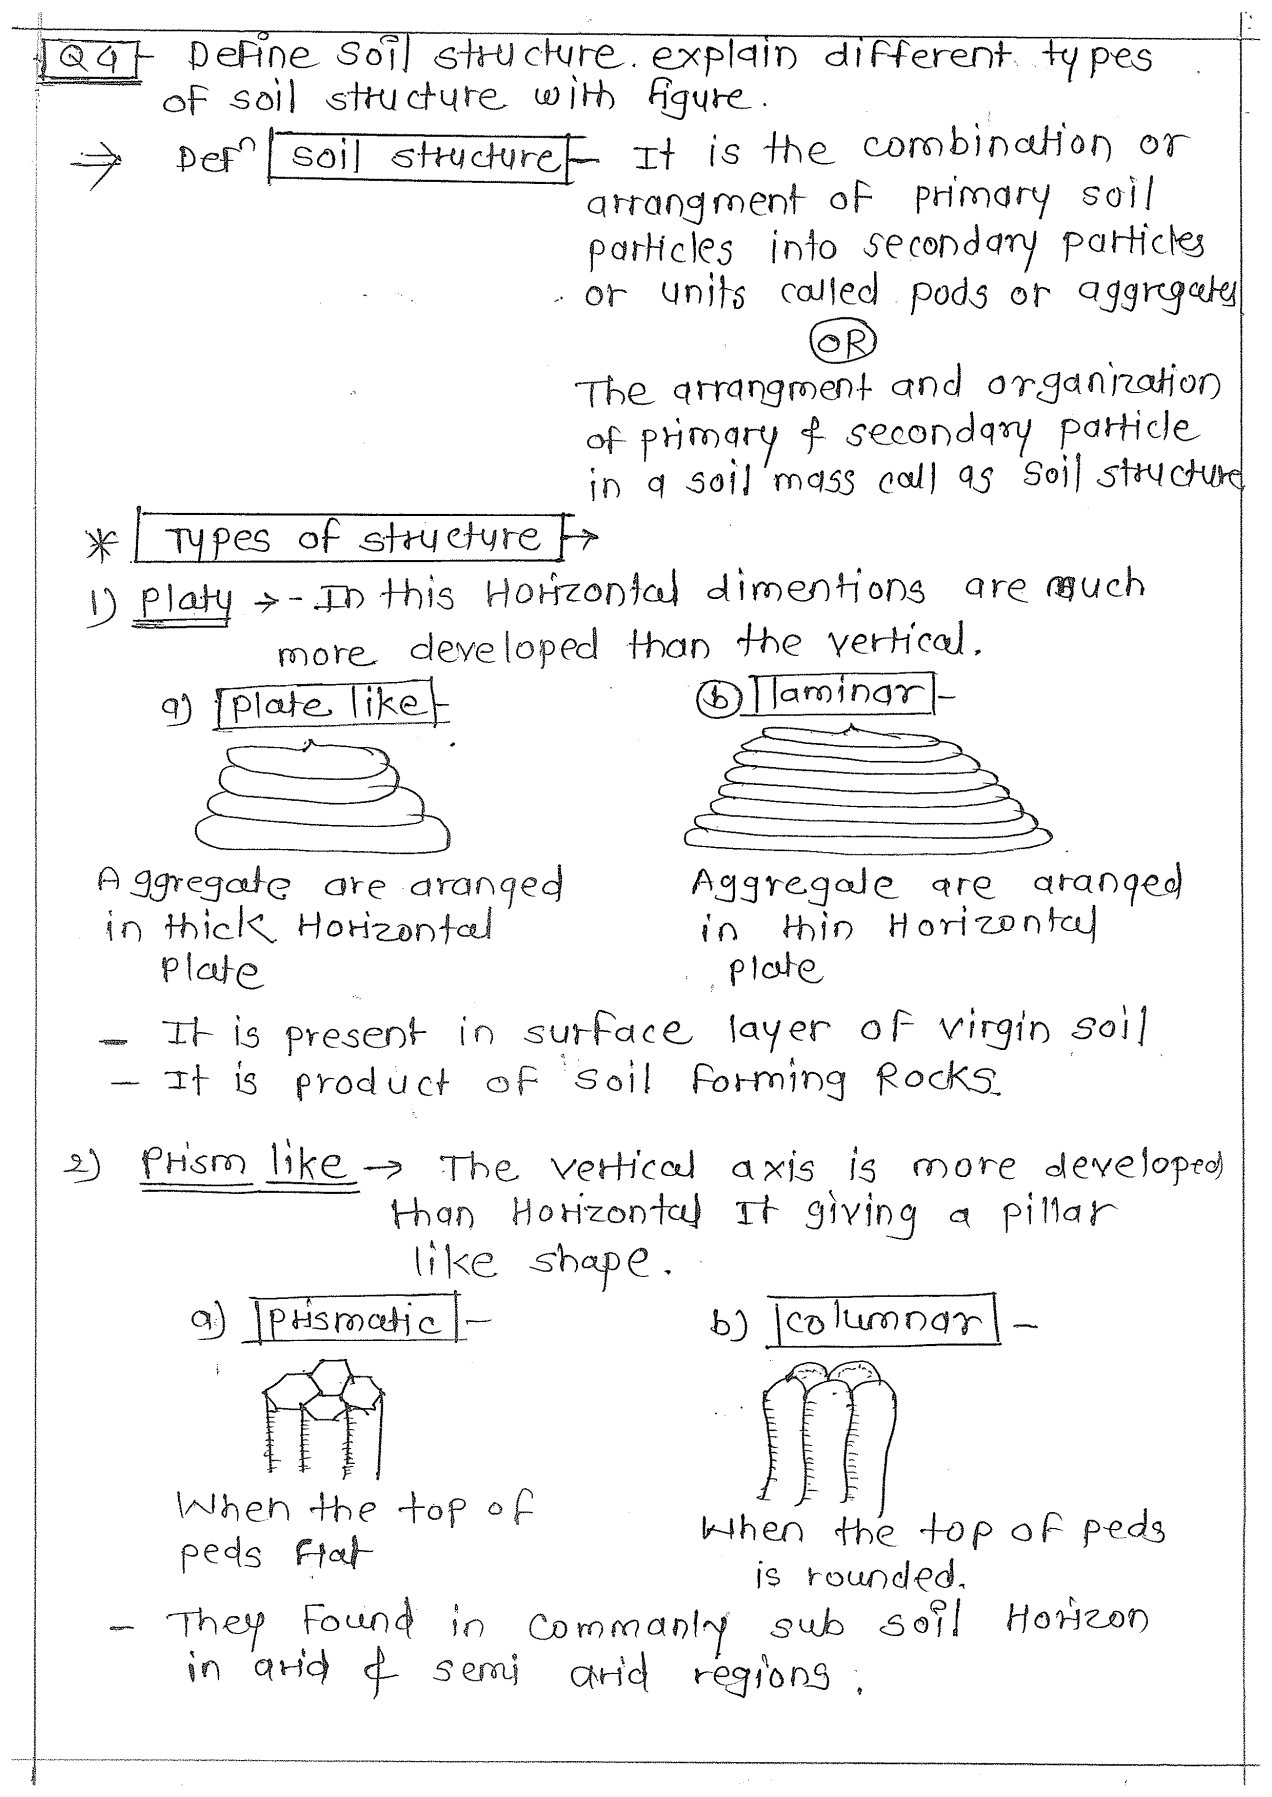 Q4 - Define soil structure. explain different types
of soil structure with figure.
⇒ Defⁿ soil structure - It is the combination or
arrangment of primary soil
particles into secondary particles
or units called pods or aggregates
OR
The arrangment and organization
of primary & secondary particle
in a soil mass call as soil structure
* Types of structure →
1) Platy → - In this Horizontal dimentions are much
more developed than the vertical.
a) Plate like -
b laminar -
Aggregate are aranged
in thick Horizontal
Plate
Aggregate are aranged
in thin Horizontal
plate
- It is present in surface layer of virgin soil
- It is product of soil forming Rocks.
2) Prism like → The vertical axis is more developed
than Horizontal It giving a pillar
like shape.
a) Prismatic -
b) columnar -
When the top of
peds flat
When the top of peds
is rounded.
- They Found in commanly sub soil Horizon
in arid & semi arid regions.